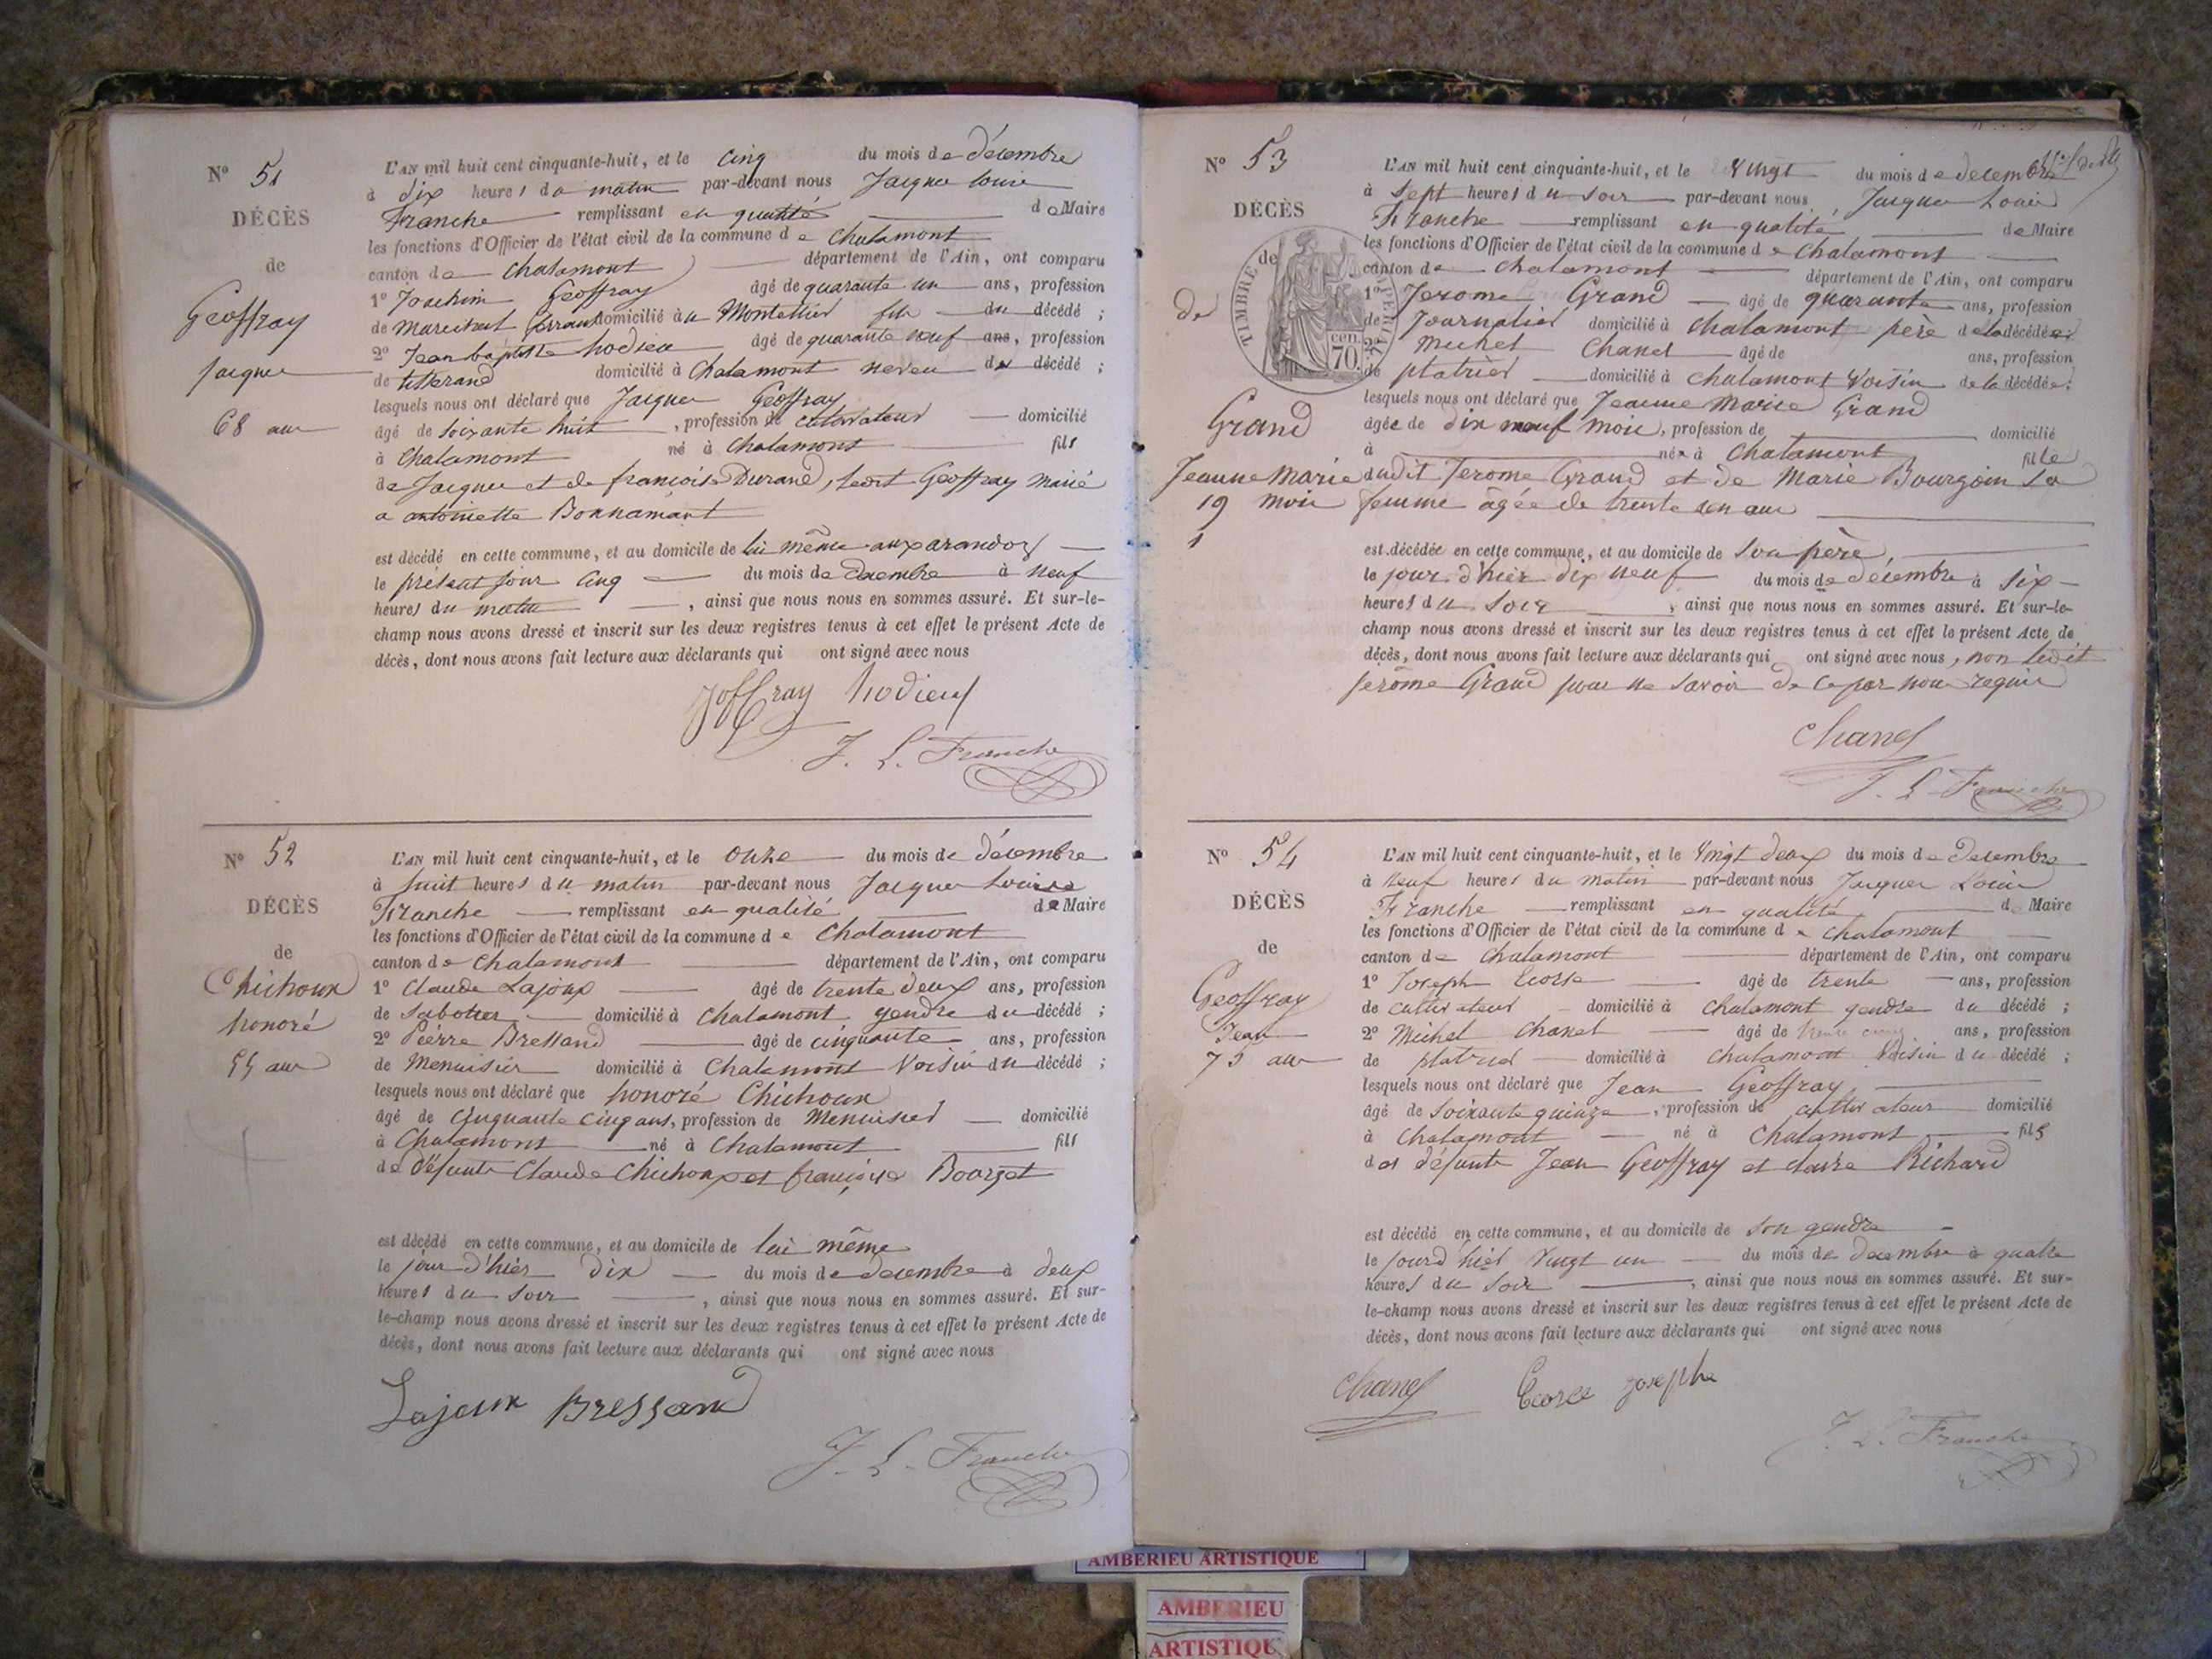 N° 51
DÉCÈS
de
Geoffray
Jacques
68 ans
L'AN mil huit cent cinquante-huit, et le cinq du mois de décembre
à dix heures du matin par-devant nous Jacques Louis
Franche remplissant en qualité de Maire
les fonctions d'Officier de l'état civil de la commune de Chalamont
canton de Chalamont département de l'Ain, ont comparu
1° Joachim Geoffray âgé de quarante un ans, profession
de marechal ferrant domicilié au Montellier fils du décédé ;
2° Jean baptiste hodieu âgé de quarante neuf ans, profession
de tisserand domicilié à Chalamont neveu du décédé ;
lesquels nous ont déclaré que Jacques Geoffray
âgé de soixante huit , profession de cultivateur domicilié
à Chalamont né à Chalamont fils
de Jacques et de françoise Durand, ledit Geoffray marié
a antoinette Bonnamant
est décédé en cette commune, et au domicile de lui même aux
le présent jour cinq du mois de décembre à neuf
heures du matin , ainsi que nous nous en sommes assuré. Et sur-le-
champ nous avons dressé et inscrit sur les deux registres tenus à cet effet le présent Acte de
décès, dont nous avons fait lecture aux déclarants qui ont signé avec nous
Joffray hodieu
J. L. Franche
N° 52
DÉCÈS
de
Chichoux
honoré
55 ans
L'AN mil huit cent cinquante-huit, et le onze du mois de décembre
à huit heures du matin par-devant nous Jacques Louis
Franche remplissant en qualité de Maire
les fonctions d'Officier de l'état civil de la commune de Chalamont
canton de Chalamont département de l'Ain, ont comparu
1° Claude Lajoux âgé de trente deux ans, profession
de sabotier domicilié à Chalamont gendre du décédé ;
2° Pierre Bressand âgé de cinquante ans, profession
de Menuisier domicilié à Chalamont Voisin du décédé ;
lesquels nous ont déclaré que honoré Chichoux
âgé de cinquante cinq ans, profession de Menuisier domicilié
à Chalamont né à Chalamont fils
de défunts Claude Chichoux et françoise Bourget
est décédé en cette commune, et au domicile de lui même
le jour d'hier dix du mois de décembre à deux
heures du soir , ainsi que nous nous en sommes assuré. Et sur-
le-champ nous avons dressé et inscrit sur les deux registres tenus à cet effet le présent Acte de
décès, dont nous avons fait lecture aux déclarants qui ont signé avec nous
Lajoux Bressand
J. L. Franche
N° 53
DÉCÈS
de
TIMBRE IMPERIAL
70 cen.
de
Grand
Jeanne Marie
19 mois
L'AN mil huit cent cinquante-huit, et le Vingt du mois de decembre
à sept heures du soir par-devant nous Jacques Louis
Franche remplissant en qualité de Maire
les fonctions d'Officier de l'état civil de la commune de Chalamont
canton de Chalamont département de l'Ain, ont comparu
1° Jerome Grand âgé de quarante ans, profession
de Journalier domicilié à Chalamont père de la décédée ;
2° Michel Chanel âgé de ans, profession
de platrier domicilié à Chalamont Voisin de la décédée ;
lesquels nous ont déclaré que Jeanne Marie Grand
âgée de dix neuf mois, profession de domicilié
à née à Chalamont fille
dudit Jerome Grand et de Marie Bourgoin sa
femme âgée de trente un ans
est décédée en cette commune, et au domicile de son père,
le jour d'hier dix neuf du mois de décembre à six
heures du soir , ainsi que nous nous en sommes assuré. Et sur-le-
champ nous avons dressé et inscrit sur les deux registres tenus à cet effet le présent Acte de
décès, dont nous avons fait lecture aux déclarants qui ont signé avec nous, non ledit
Jerôme Grand pour ne savoir de ce par nous requis
Chanel
J. L. Franche
N° 54
DÉCÈS
de
Geoffray
Jean
75 ans
L'AN mil huit cent cinquante-huit, et le Vingt deux du mois de Decembre
à neuf heures du matin par-devant nous Jacques Louis
Franche remplissant en qualité de Maire
les fonctions d'Officier de l'état civil de la commune de Chalamont
canton de Chalamont département de l'Ain, ont comparu
1° Joseph Ecorse âgé de trente ans, profession
de cultivateur domicilié à Chalamont gendre du décédé ;
2° Michel Chanel âgé de trente cinq ans, profession
de platrier domicilié à Chalamont Voisin du décédé ;
lesquels nous ont déclaré que Jean Geoffray
âgé de soixante quinze , profession de cultivateur domicilié
à Chalamont né à Chalamont fils
des défunts Jean Geoffray et claire Richard
est décédé en cette commune, et au domicile de son gendre
le jour d'hier Vingt un du mois de decembre à quatre
heures du soir , ainsi que nous nous en sommes assuré. Et sur-
le-champ nous avons dressé et inscrit sur les deux registres tenus à cet effet le présent Acte de
décès, dont nous avons fait lecture aux déclarants qui ont signé avec nous
Chanel Ecorce Josephe
J. L. Franche
AMBERIEU ARTISTIQUE
AMBERIEU
ARTISTIQU